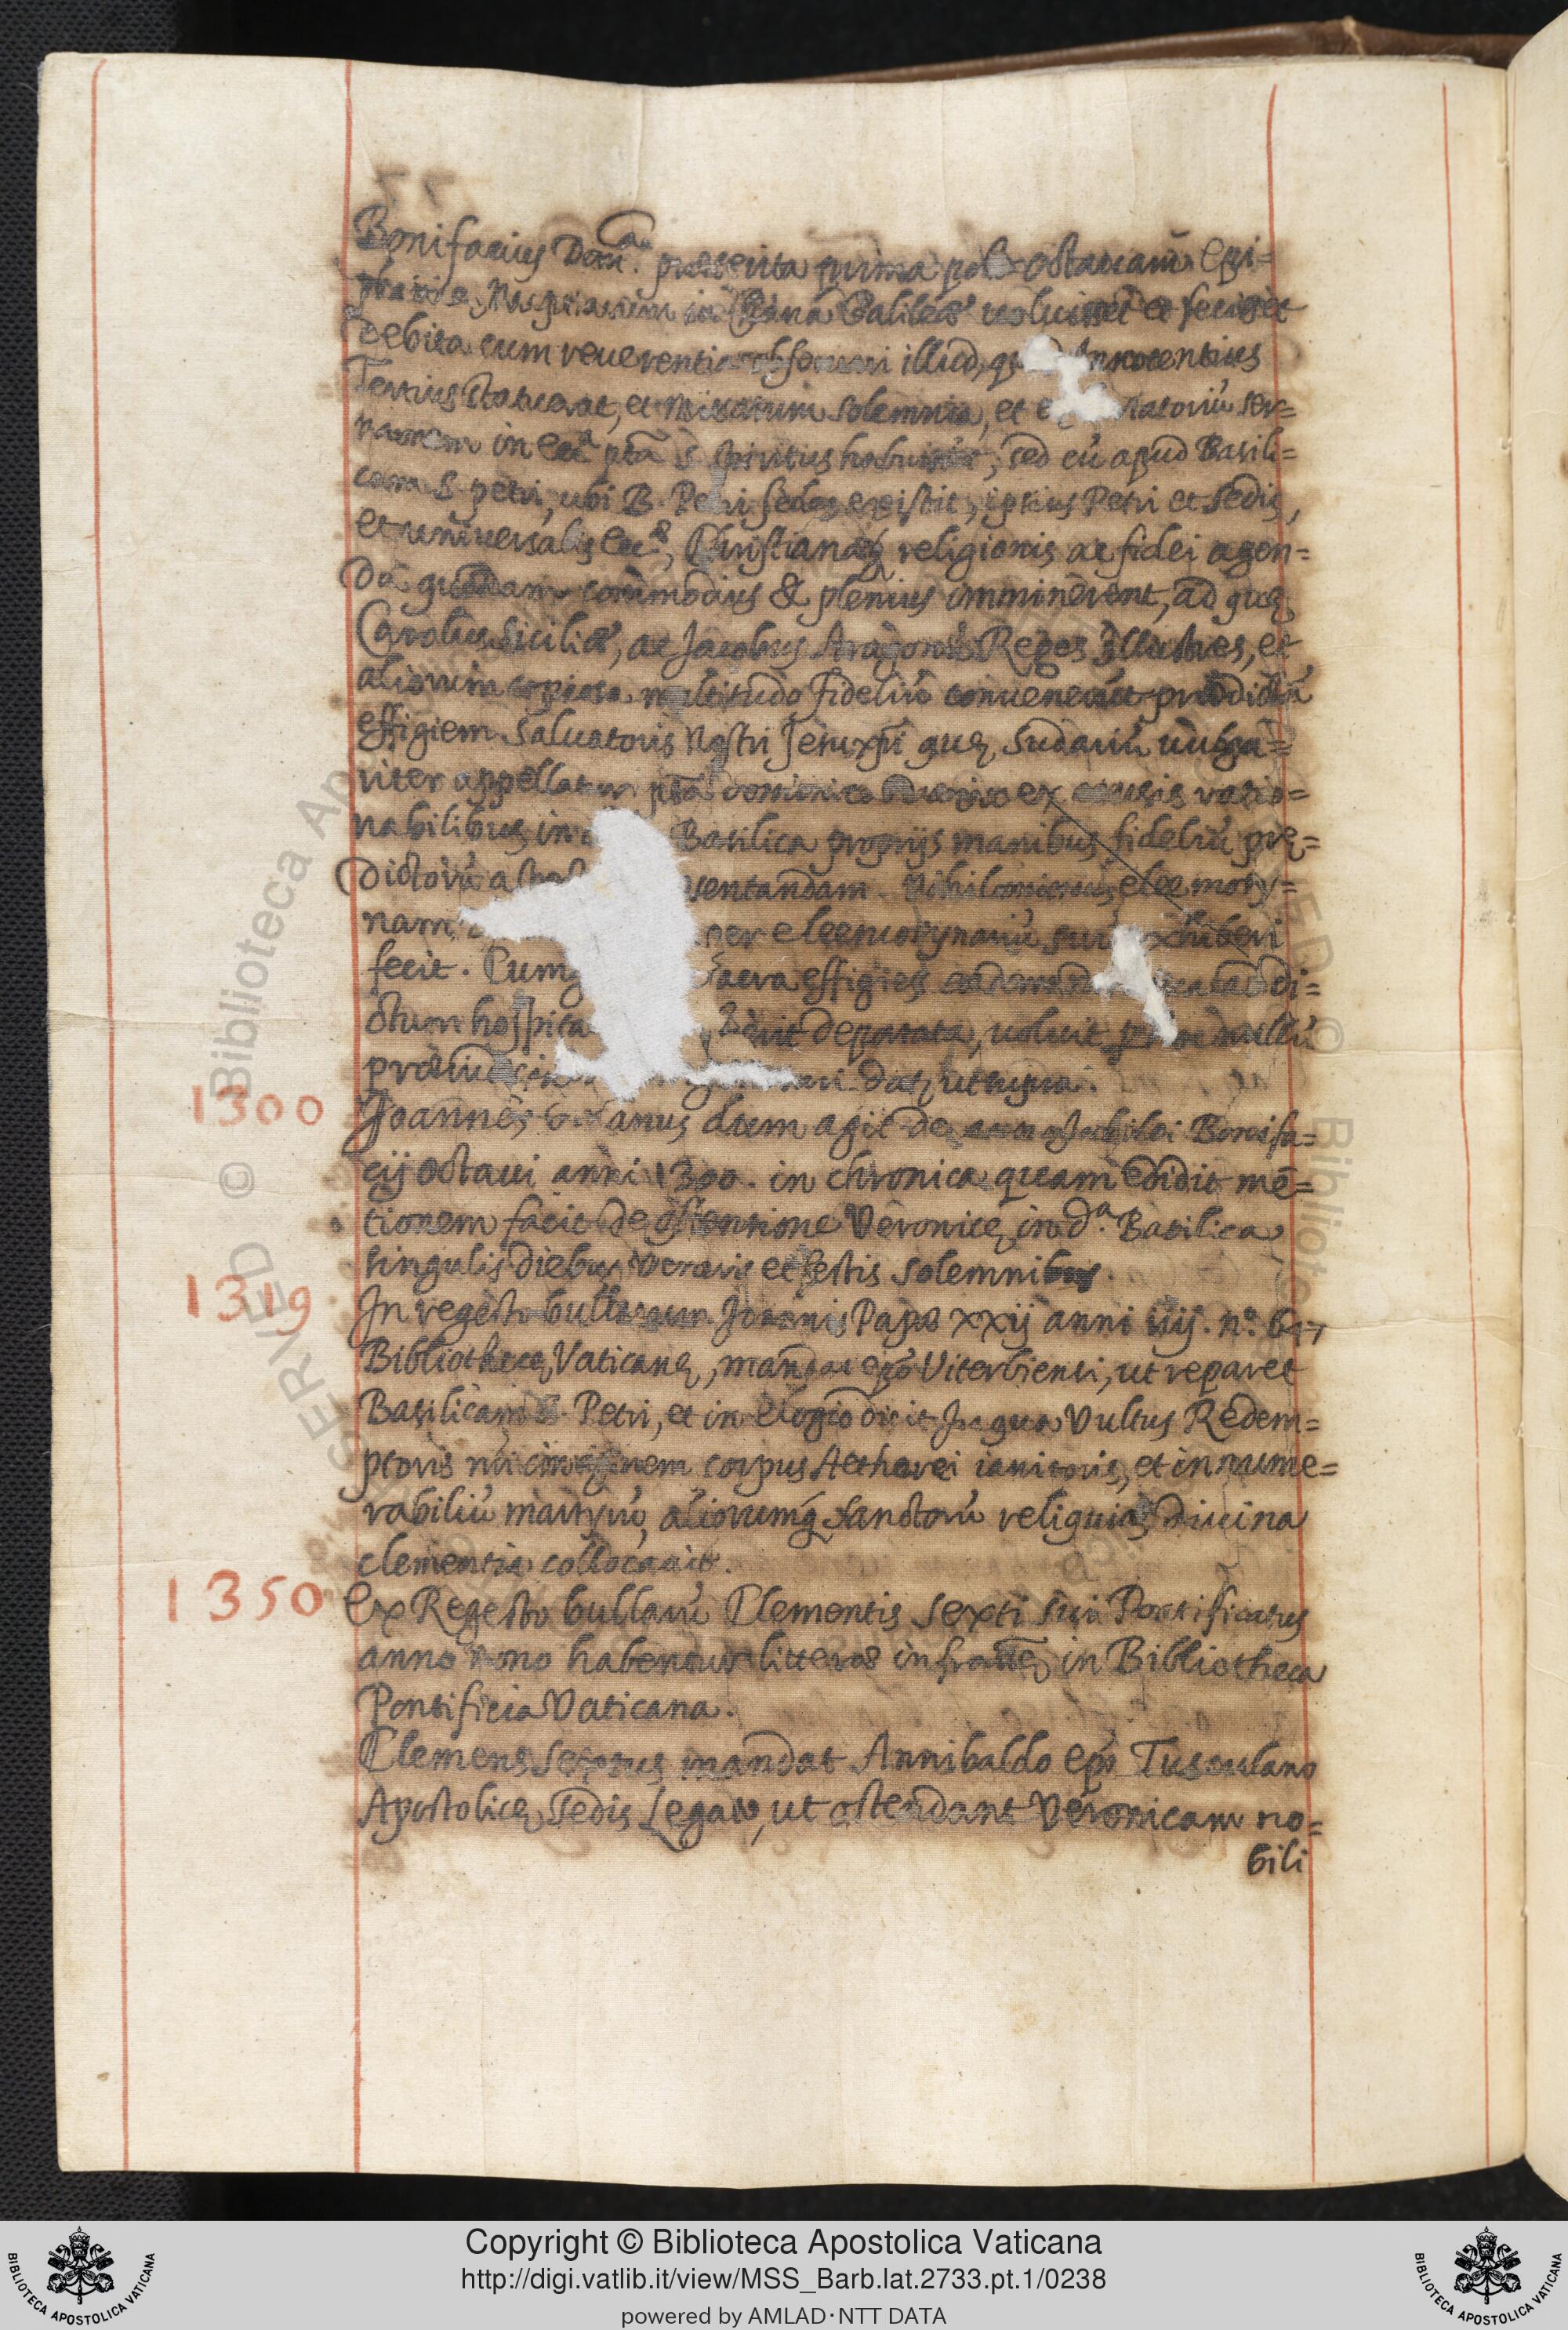 Bonifacius Domca. preterita prima post octauam Epi=
phaniæ Nuptiarum in Chana Galileæ uoluisset et fecisset
debita cum reuerentia obseruari illud, qu Innocentius
Tertius statuerat, et missarum solemnia, et e tatoriũ ser=
monem in ecca pta S. Spiritus habuisset, sed cũ apud Basili=
cam S. petri, ubi B. Petri sedes existit, ipsius Petri et Sedis,
et uniuersalis eccæ, Christianæq religionis ac fidei agen=
da quædam commodius & plenius imminerent, ad quę
Carolus Siciliæ, ac Jacobus Aragonũ Reges Illustres, et
aliorum copiosa multitudo fideliũ conuenerũt prædictũ
effigiem Saluatoris Nostri Jesuxp̃i quę Sudariũ uulga=
riter appellatur pta dominica ex causis ratio=
nabilibus in Basilica proprijs manibus fideliũ prę=
dictorũ a sentandam. Nihilominus eleemosy=
nam per eleemosynariũ suũ exhiberi
fecit. Cum sacra effigies eadem di=
ctum hospita fuit deportata, uoluit nullũ
præiudici datz ut supra.
1300 Joannes anus dum agit de anno Jubilei Bonifa=
cij octaui anni 1300. in chronica quam edidit mẽ=
tionem facit de ostentione Veronicę in da. Basilica
singulis diebus Veneris et festis solemnibus.
1319 In regesto bullarum Joannis Papæ xxij anni iij. no. 647
Bibliothecę Vaticanę, mandat epõ Viterbiensi, ut reparet
Basilicam S. Petri, et in elogio dicit In qua Vultus Redem=
ptoris nri imaginem corpus Aetherei ianitoris, et innume=
rabiliũ martyrũ, aliorumq Sanctorũ reliquias diuina
clementia collocauit.
1350 Ex Regesto bullarũ Clementis Sexti sui Pontificatus
anno nono habentur litteræ infrattę in Bibliotheca
Pontificia Vaticana.
Clemens Sextus mandat Annibaldo Epõ Tusculano
Apostolicę Sedis Legato, ut ostendant Veronicam no=
bili
Copyright © Biblioteca Apostolica Vaticana
http://digi.vatlib.it/view/MSS_Barb.lat.2733.pt.1/0238
powered by AMLAD·NTT DATA